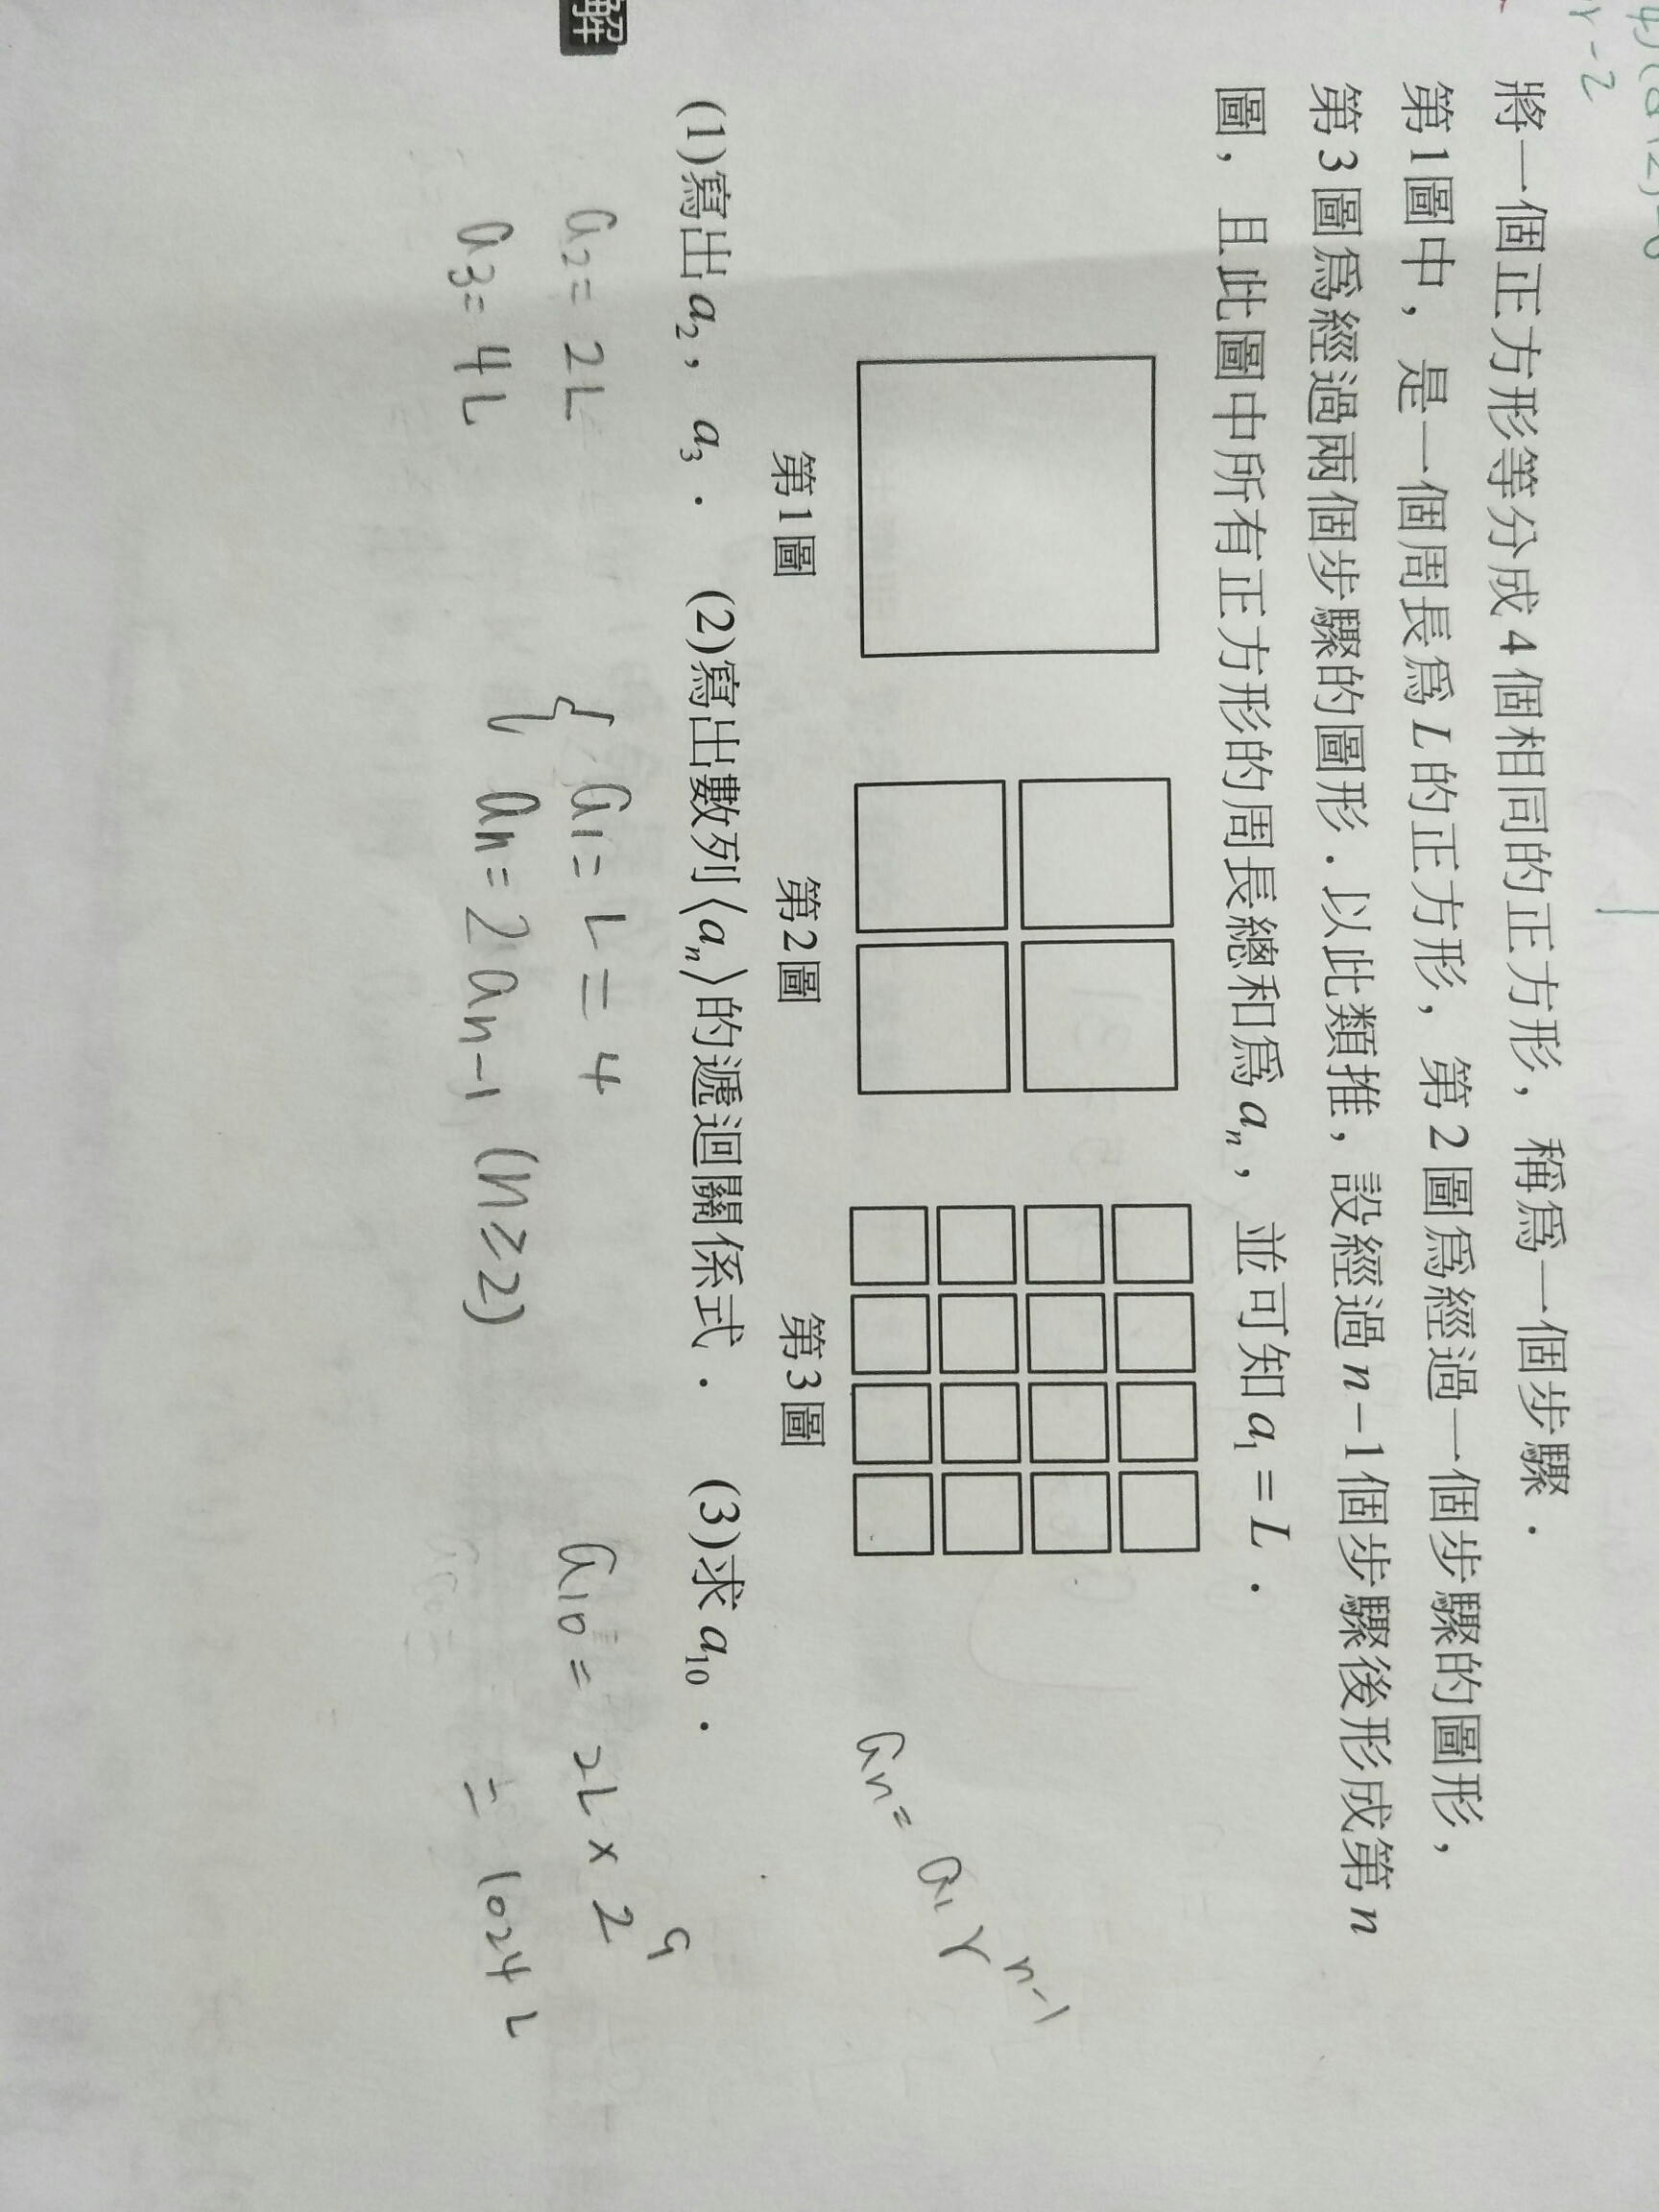 將一個正方形等分成4個相同的正方形，稱爲一個步驟．
第1圖中，是一個周長爲L的正方形，第2圖爲經過一個步驟的圖形，
第3圖爲經過兩個步驟的圖形．以此類推，設經過n－1個步驟後形成第n
圖，且此圖中所有正方形的周長總和爲aₙ，並可知a₁＝L．
第1圖 第2圖 第3圖
aₙ= a₁ rⁿ⁻¹
(1)寫出a₂，a₃． (2)寫出數列⟨aₙ⟩的遞迴關係式． (3)求a₁₀．
解
a₂= 2L
a₃= 4L
{ a₁= L = 4
aₙ= 2aₙ₋₁ (n≥2)
a₁₀= 2L × 2⁹
= 1024 L
r-2